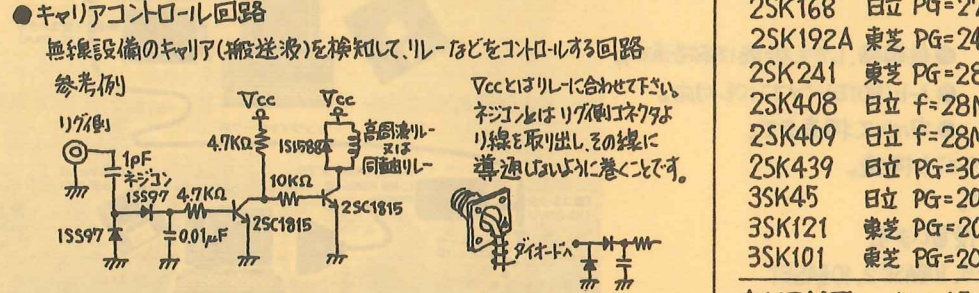 ●キャリアコントロール回路
無線設備のキャリア(搬送波)を検知して、リレーなどをコントロールする回路
参考例
リグ側
1pF
ネジコン
1SS97
1SS97
4.7KΩ
0.01μF
4.7KΩ
Vcc
10KΩ
2SC1815
Vcc
1S1588
高周波リレー
又は
同軸リレー
2SC1815
Vccとはリレーに合わせて下さい。
ネジコンとはリグ側コネクタよ
り線を取り出し、その線に
導通しないように巻くことです。
ダイオードへ
2SK168 日立 PG=27
2SK192A 東芝 PG=24
2SK241 東芝 PG=28
2SK408 日立 f=28M
2SK409 日立 f=28M
2SK439 日立 PG=30
3SK45 日立 PG=20
3SK121 東芝 PG=20
3SK101 東芝 PG=20